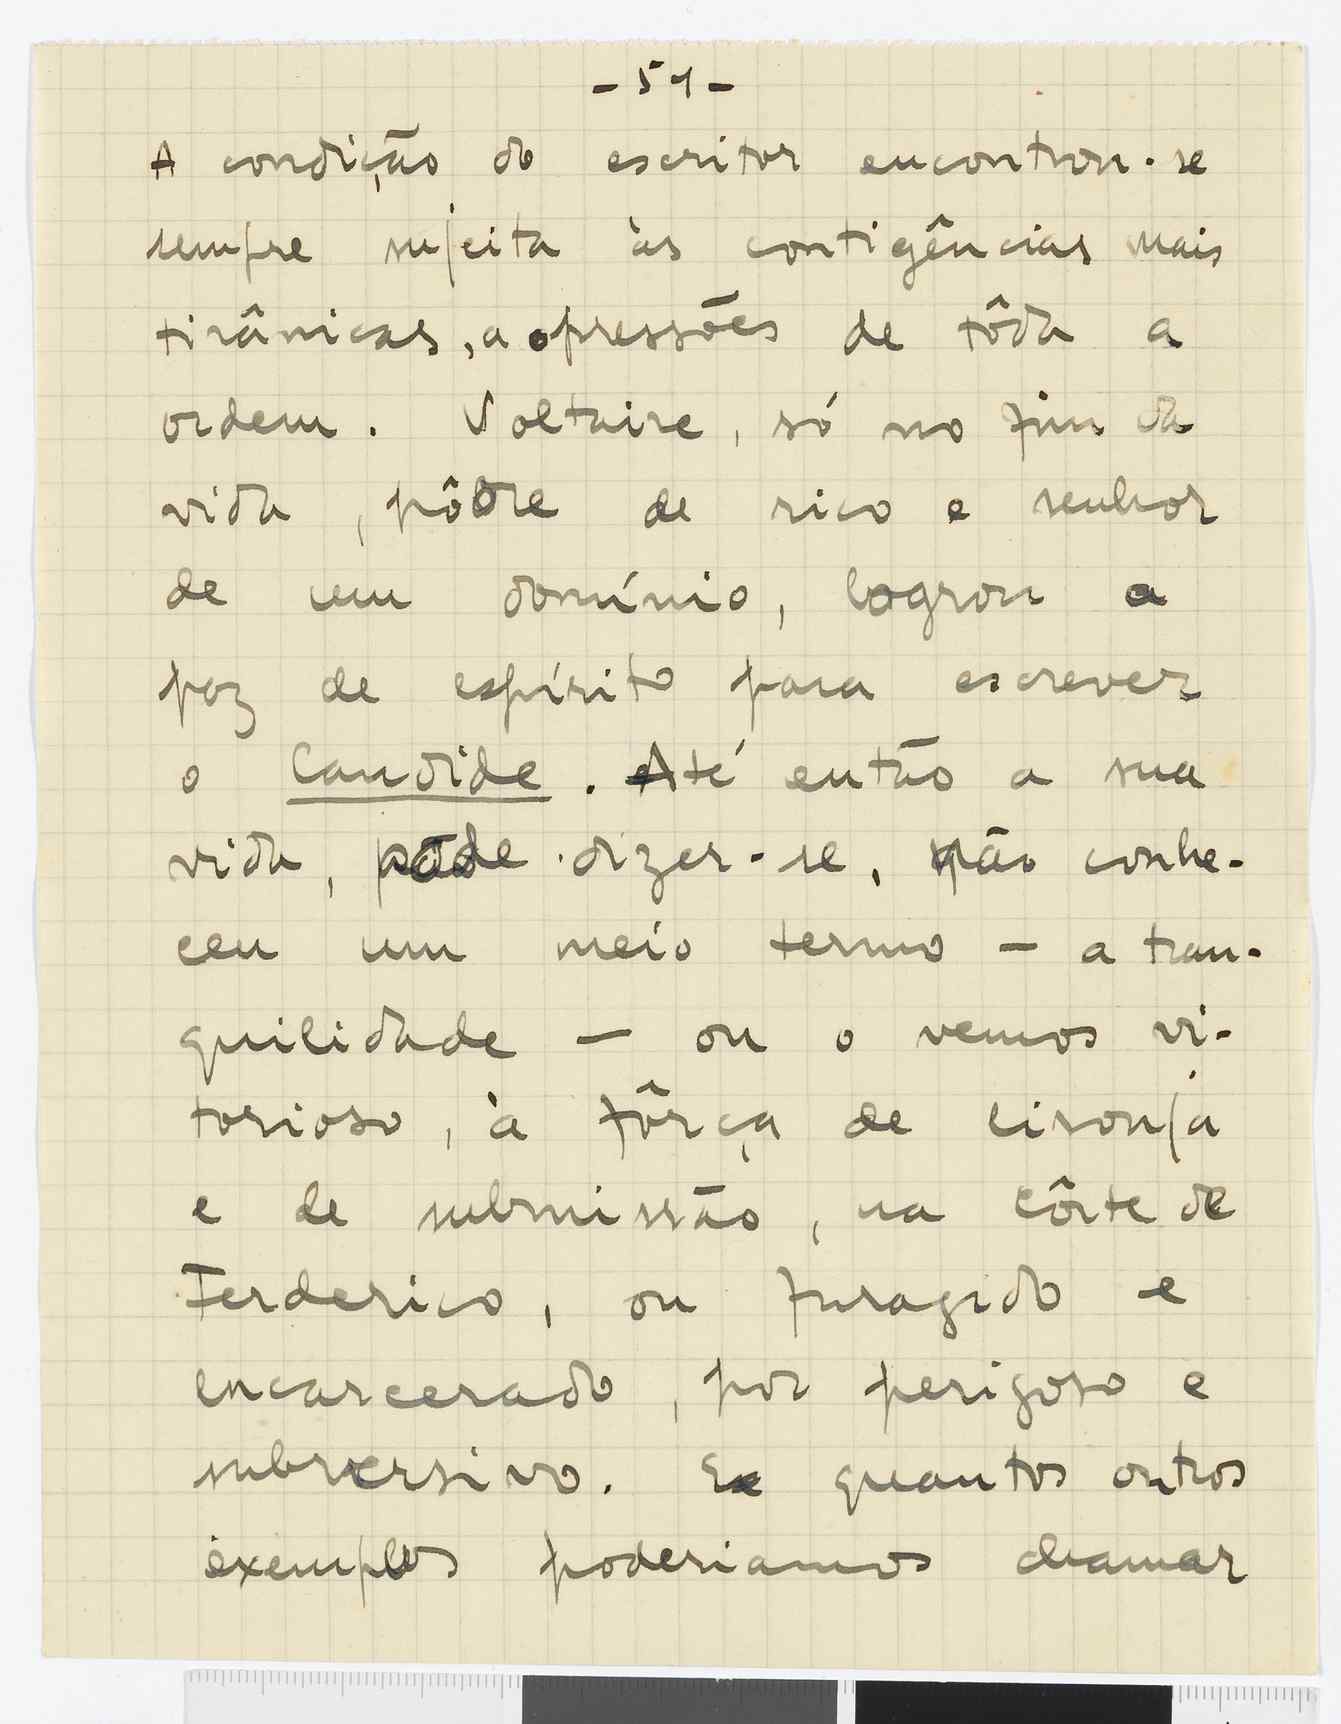 - 51 -
A condição do escritor encontrou-se
sempre sujeita às contigências mais
tirânicas, a opressões de tôda a
ordem. Voltaire, só no fim da
vida, pôdre de rico e senhor
de um domínio, logrou a
paz de espírito para escrever
o Candide. Até então a sua
vida, póde dizer-se, não conhe-
ceu um meio termo - a tran-
quilidade - ou o vemos vi-
torioso, à fôrça de lisonja
e de submissão, na côrte de
Ferderico, ou furagido e
encarcerado, por perigoso e
subversivo. E quantos outros
exemplos poderiamos chamar